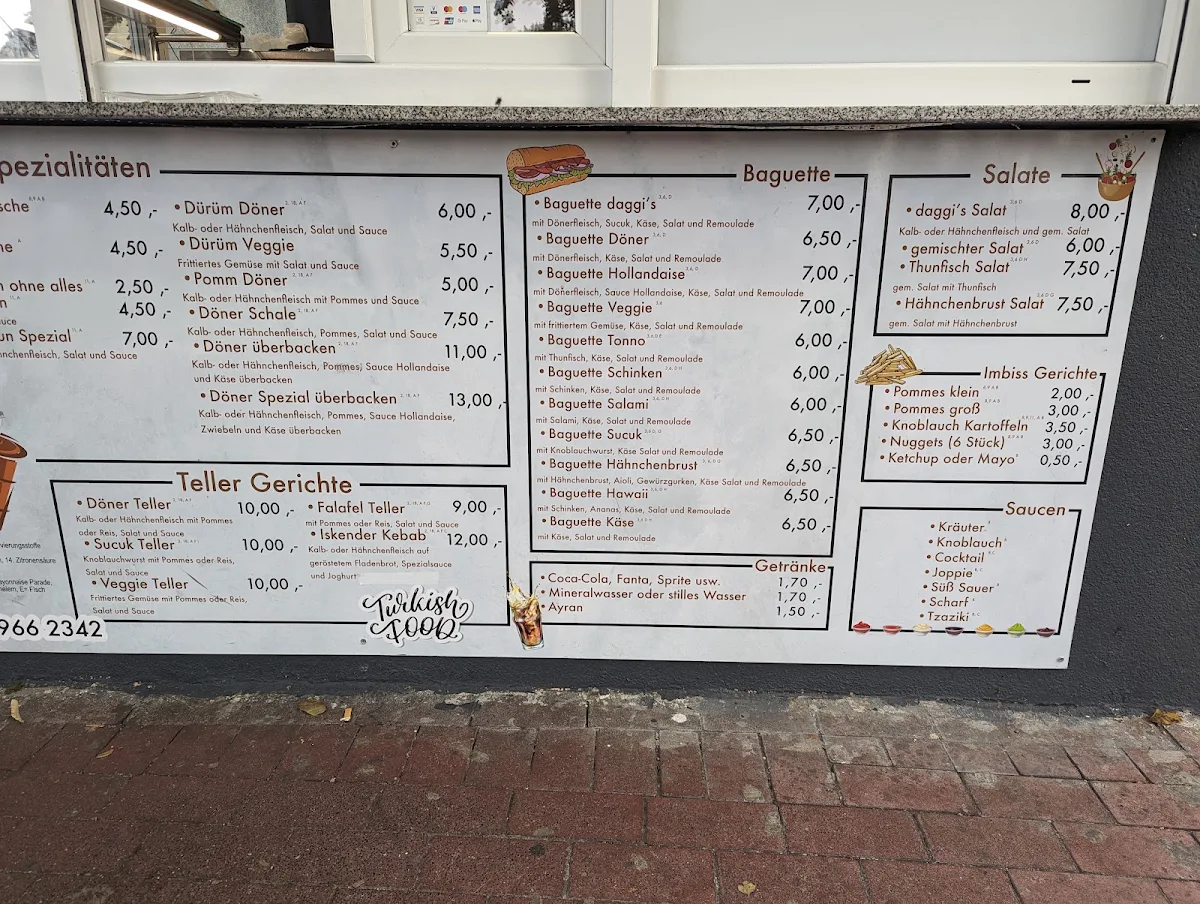 pezialitäten
sche 4,50 ,-
4,50 ,-
ohne alles 2,50 ,-
4,50 ,-
un Spezial 7,00 ,-
nchenfleisch, Salat und Sauce
• Dürüm Döner 6,00 ,-
Kalb- oder Hähnchenfleisch, Salat und Sauce
• Dürüm Veggie 5,50 ,-
Frittiertes Gemüse mit Salat und Sauce
• Pomm Döner 5,00 ,-
Kalb- oder Hähnchenfleisch mit Pommes und Sauce
• Döner Schale 7,50 ,-
Kalb- oder Hähnchenfleisch, Pommes, Salat und Sauce
• Döner überbacken 11,00 ,-
Kalb- oder Hähnchenfleisch, Pommes, Sauce Hollandaise
und Käse überbacken
• Döner Spezial überbacken 13,00 ,-
Kalb- oder Hähnchenfleisch, Pommes, Sauce Hollandaise,
Zwiebeln und Käse überbacken
Teller Gerichte
• Döner Teller 10,00 ,-
Kalb- oder Hähnchenfleisch mit Pommes
oder Reis, Salat und Sauce
• Sucuk Teller 10,00 ,-
Knoblauchwurst mit Pommes oder Reis,
Salat und Sauce
• Veggie Teller 10,00 ,-
Frittiertes Gemüse mit Pommes oder Reis,
Salat und Sauce
• Falafel Teller 9,00 ,-
mit Pommes oder Reis, Salat und Sauce
• Iskender Kebab 12,00 ,-
Kalb- oder Hähnchenfleisch auf
geröstetem Fladenbrot, Spezialsauce
und Joghurt
Turkish
FOOD
vierungsstoffe
14. Zitronensäure
ayonnaise Parade,
966 2342
Baguette
• Baguette daggi's 7,00 ,-
mit Dönerfleisch, Sucuk, Käse, Salat und Remoulade
• Baguette Döner 6,50 ,-
mit Dönerfleisch, Käse, Salat und Remoulade
• Baguette Hollandaise 7,00 ,-
mit Dönerfleisch, Sauce Hollandaise, Käse, Salat und Remoulade
• Baguette Veggie 7,00 ,-
mit frittiertem Gemüse, Käse, Salat und Remoulade
• Baguette Tonno 6,00 ,-
mit Thunfisch, Käse, Salat und Remoulade
• Baguette Schinken 6,00 ,-
mit Schinken, Käse, Salat und Remoulade
• Baguette Salami 6,00 ,-
mit Salami, Käse, Salat und Remoulade
• Baguette Sucuk 6,50 ,-
mit Knoblauchwurst, Käse Salat und Remoulade
• Baguette Hähnchenbrust 6,50 ,-
mit Hähnchenbrust, Aioli, Gewürzgurken, Käse Salat und Remoulade
• Baguette Hawaii 6,50 ,-
mit Schinken, Ananas, Käse, Salat und Remoulade
• Baguette Käse 6,50 ,-
mit Käse, Salat und Remoulade
Getränke
• Coca-Cola, Fanta, Sprite usw. 1,70 ,-
• Mineralwasser oder stilles Wasser 1,70 ,-
• Ayran 1,50 ,-
Salate
• daggi's Salat 8,00 ,-
Kalb- oder Hähnchenfleisch und gem. Salat
• gemischter Salat 6,00 ,-
• Thunfisch Salat 7,50 ,-
gem. Salat mit Thunfisch
• Hähnchenbrust Salat 7,50 ,-
gem. Salat mit Hähnchenbrust
Imbiss Gerichte
• Pommes klein 2,00 ,-
• Pommes groß 3,00 ,-
• Knoblauch Kartoffeln 3,50 ,-
• Nuggets (6 Stück) 3,00 ,-
• Ketchup oder Mayo 0,50 ,-
Saucen
• Kräuter
• Knoblauch
• Cocktail
• Joppie
• Süß Sauer
• Scharf
• Tzaziki